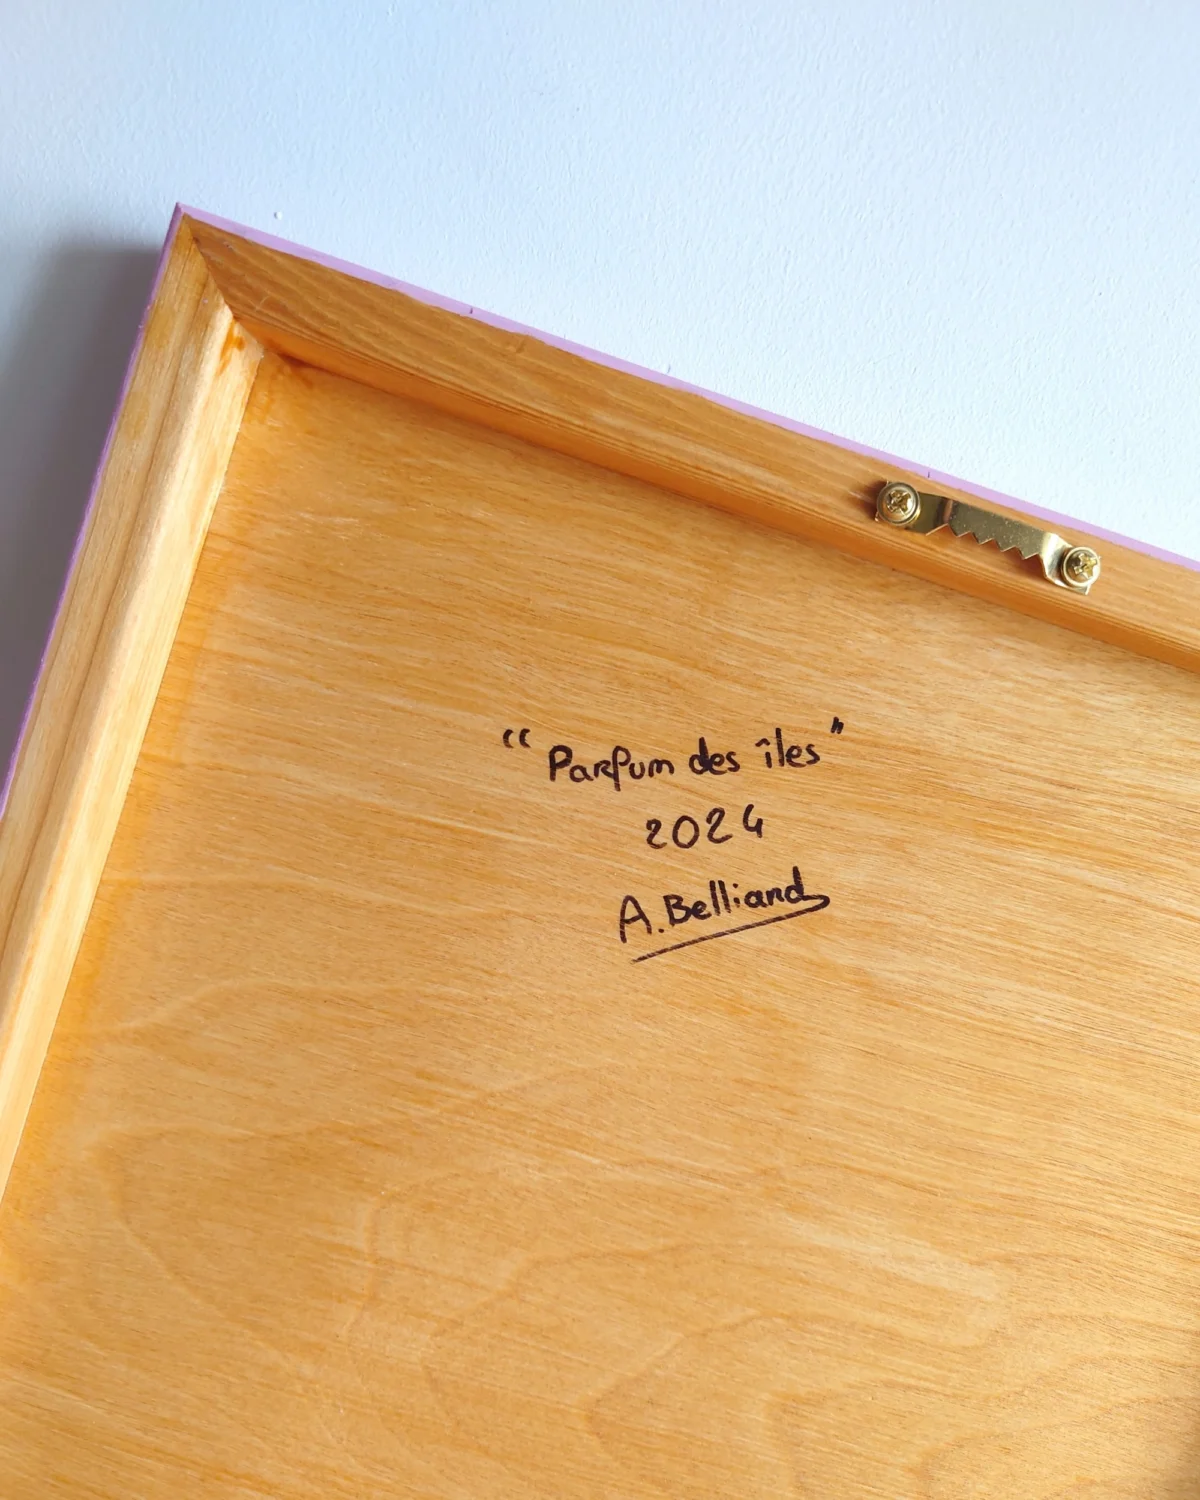 “Parfum des îles”
2024
A. Belliard